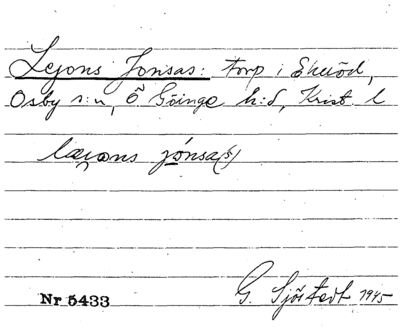 Lejons Jonsas: torp i Skeröd,
Osby s:n, Ö Göinge h:d, Krist l
læi̯ons jónsa(s)
Nr 5433
G. Sjöstedt 1945